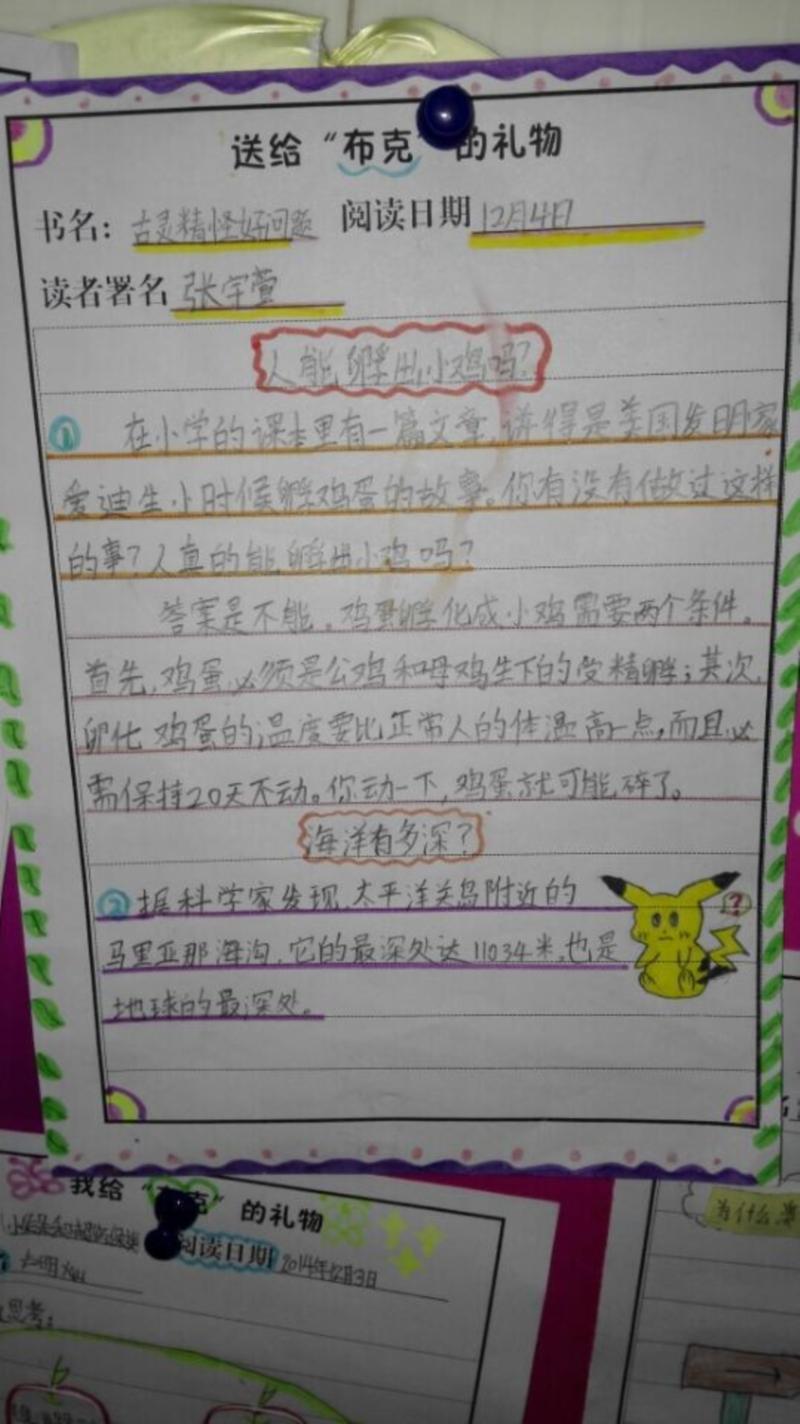 送给“布克”的礼物
书名：古灵精怪好问题 阅读日期 12月4日
读者署名 张宇萱
人能孵出小鸡吗？
① 在小学的课本里有一篇文章，讲得是美国发明家
爱迪生小时候孵鸡蛋的故事。你有没有做过这样
的事？人真的能孵出小鸡吗？
答案是不能。鸡蛋孵化成小鸡需要两个条件。
首先，鸡蛋必须是公鸡和母鸡生下的受精孵；其次，
卵化鸡蛋的温度要比正常人的体温高一点，而且必
需保持20天不动。你动一下，鸡蛋就可能碎了。
海洋有多深？
② 据科学家发现，太平洋关岛附近的
马里亚那海沟，它的最深处达11034米，也是
?
地球的最深处。
我给“布克”的礼物
阅读日期 2014年12月3日
思考：
为什么